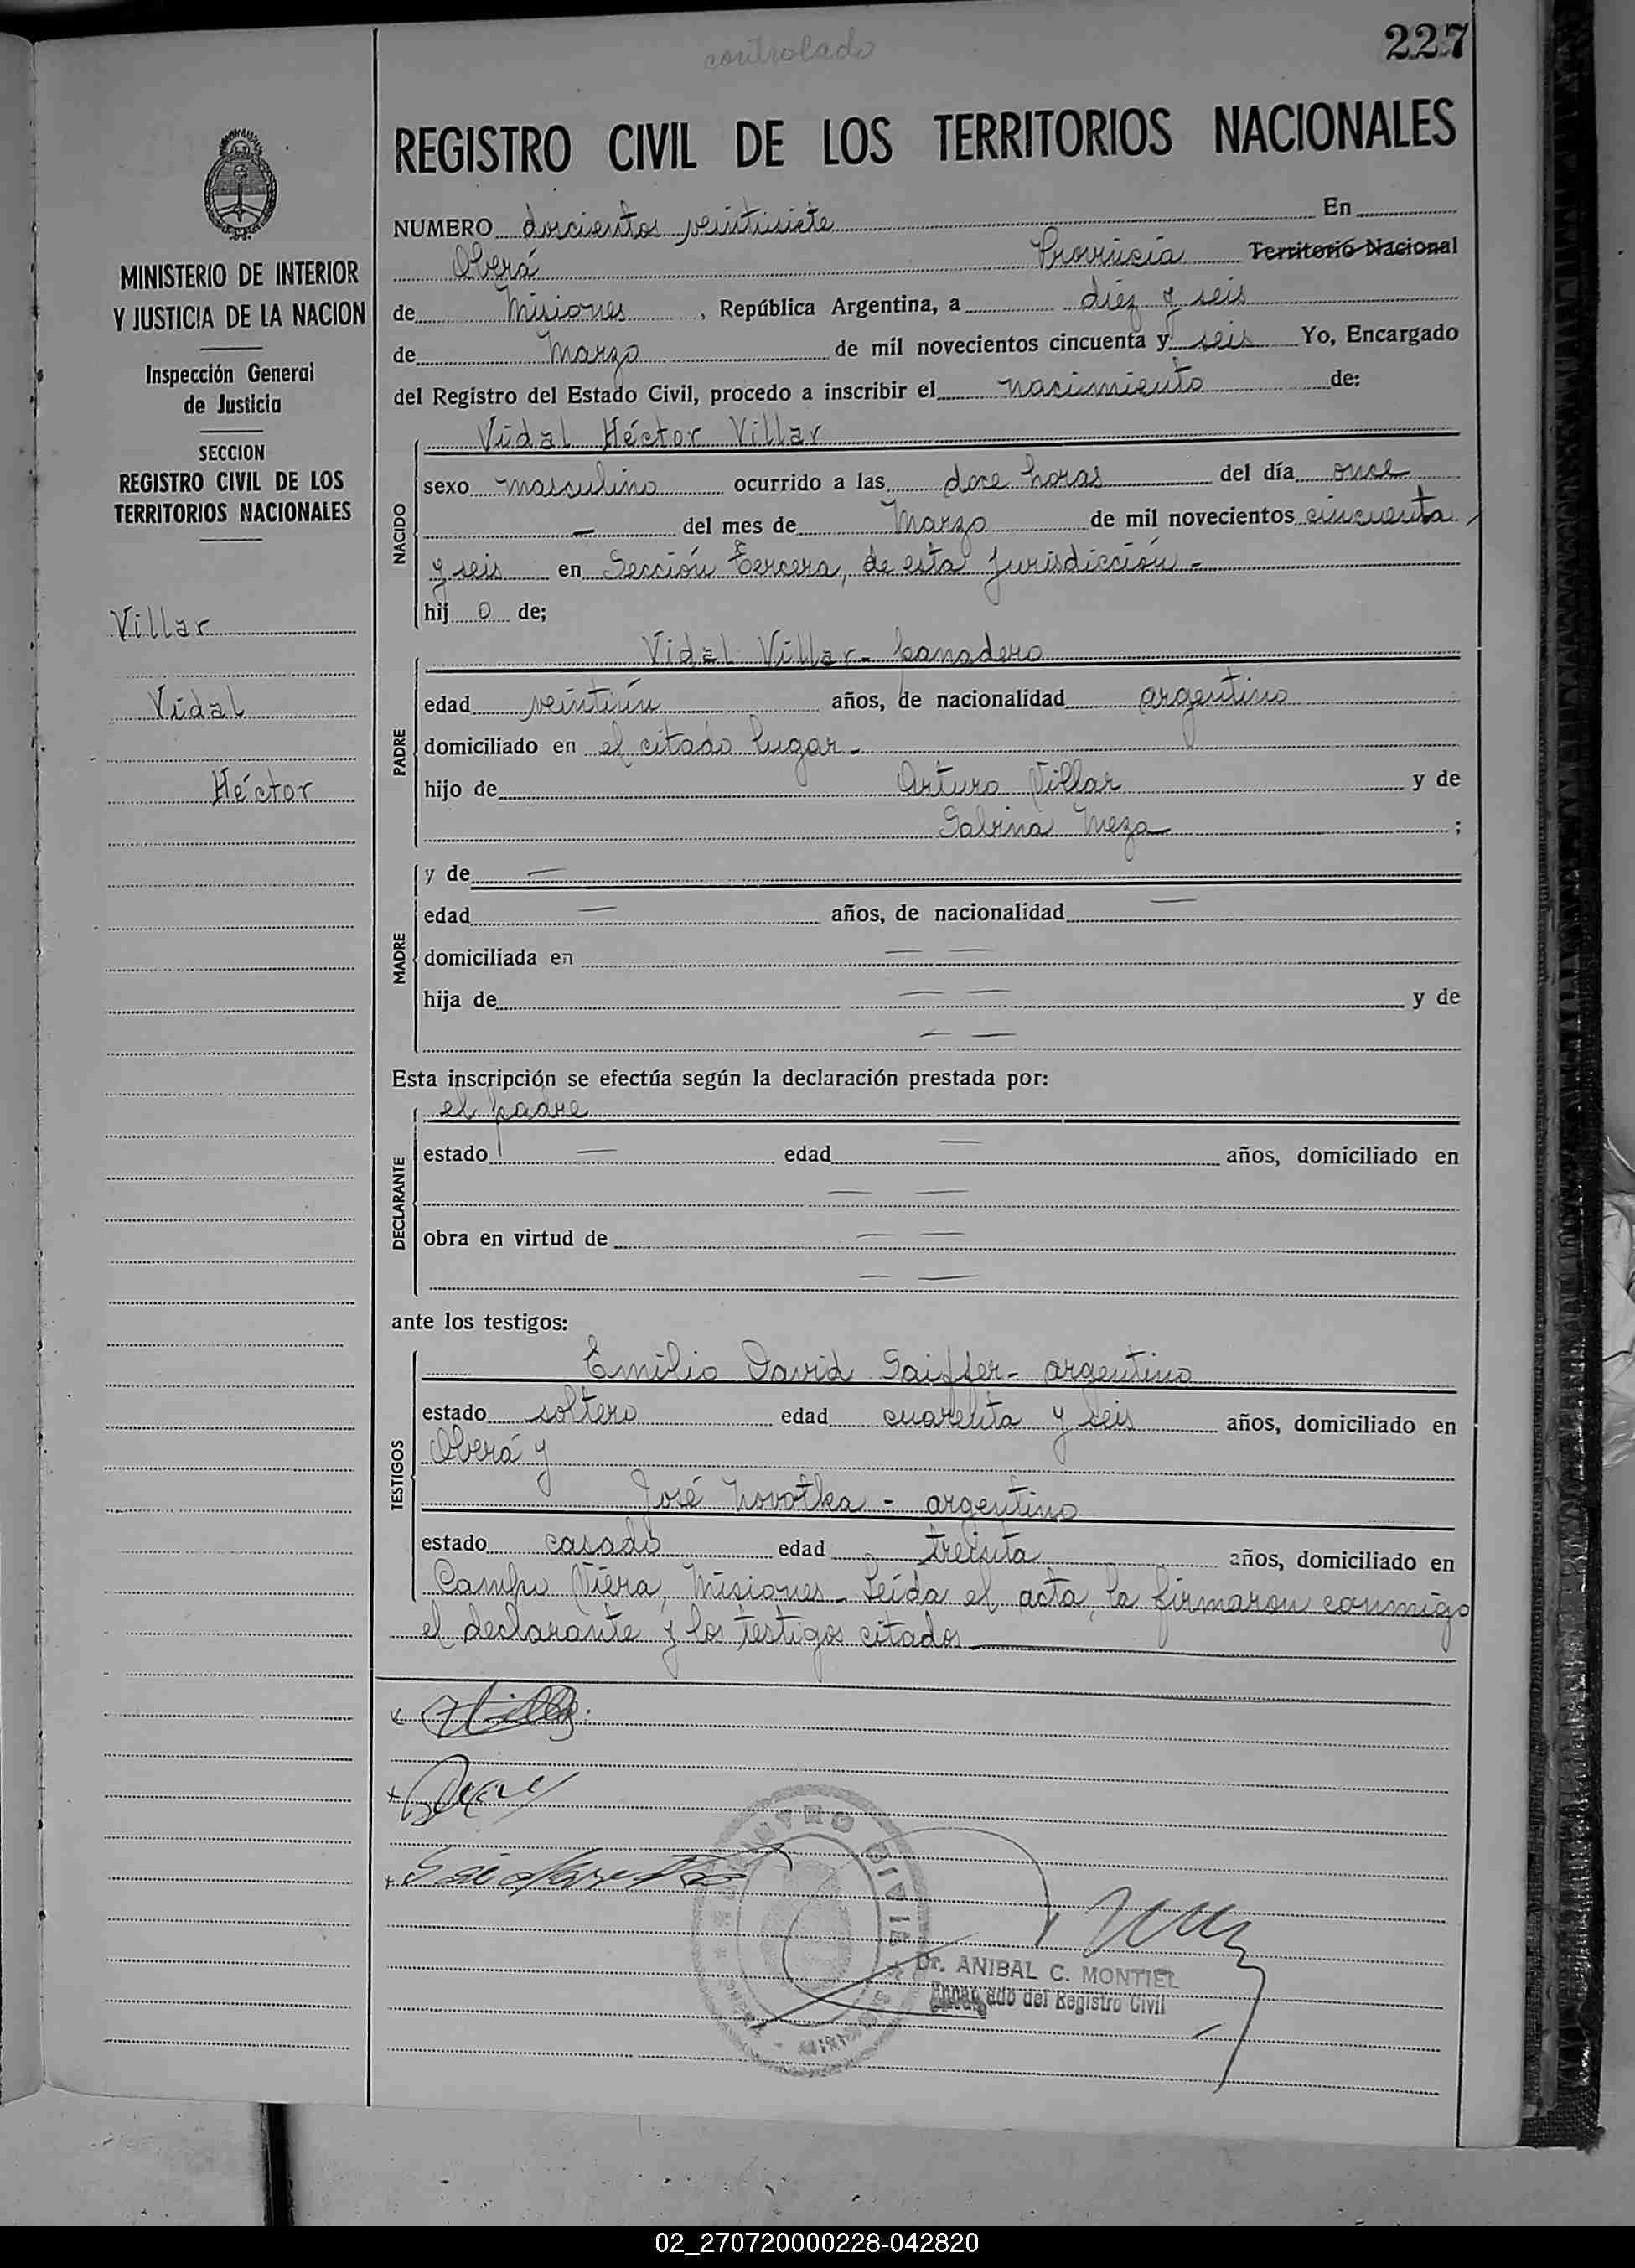 controlado
227
REGISTRO CIVIL DE LOS TERRITORIOS NACIONALES
MINISTERIO DE INTERIOR
Y JUSTICIA DE LA NACION
Inspección General
de Justicia
SECCION
REGISTRO CIVIL DE LOS
TERRITORIOS NACIONALES
Villar
Vidal
Héctor
NUMERO doscientos veintisiete En
Oberá Provincia Territorio Nacional
de Misiones, República Argentina, a diez y seis
de Marzo de mil novecientos cincuenta y seis Yo, Encargado
del Registro del Estado Civil, procedo a inscribir el nacimiento de:
NACIDO
Vidal Héctor Villar
sexo masculino ocurrido a las doce horas del día once
— del mes de Marzo de mil novecientos cincuenta
y seis en Sección tercera, de esta Jurisdicción -
hij o de;
PADRE
Vidal Villar - panadero
edad veintiún años, de nacionalidad argentino
domiciliado en el citado lugar -
hijo de Arturo Villar y de
Sabina Meza ;
MADRE
y de —
edad — años, de nacionalidad —
domiciliada en — —
hija de — — y de
— —
Esta inscripción se efectúa según la declaración prestada por:
DECLARANTE
el padre
estado — edad — años, domiciliado en
— —
obra en virtud de — —
— —
ante los testigos:
TESTIGOS
Emilio David Saiffer - argentino
estado soltero edad cuarenta y seis años, domiciliado en
Oberá y
José Novotka - argentino
estado casado edad treinta años, domiciliado en
Campo Viera, Misiones - Leída el acta, la firmaron conmigo
el declarante y los testigos citados
REGISTRO CIVIL
Dr. ANIBAL C. MONTIEL
Encargado del Registro Civil
02_270720000228-042820